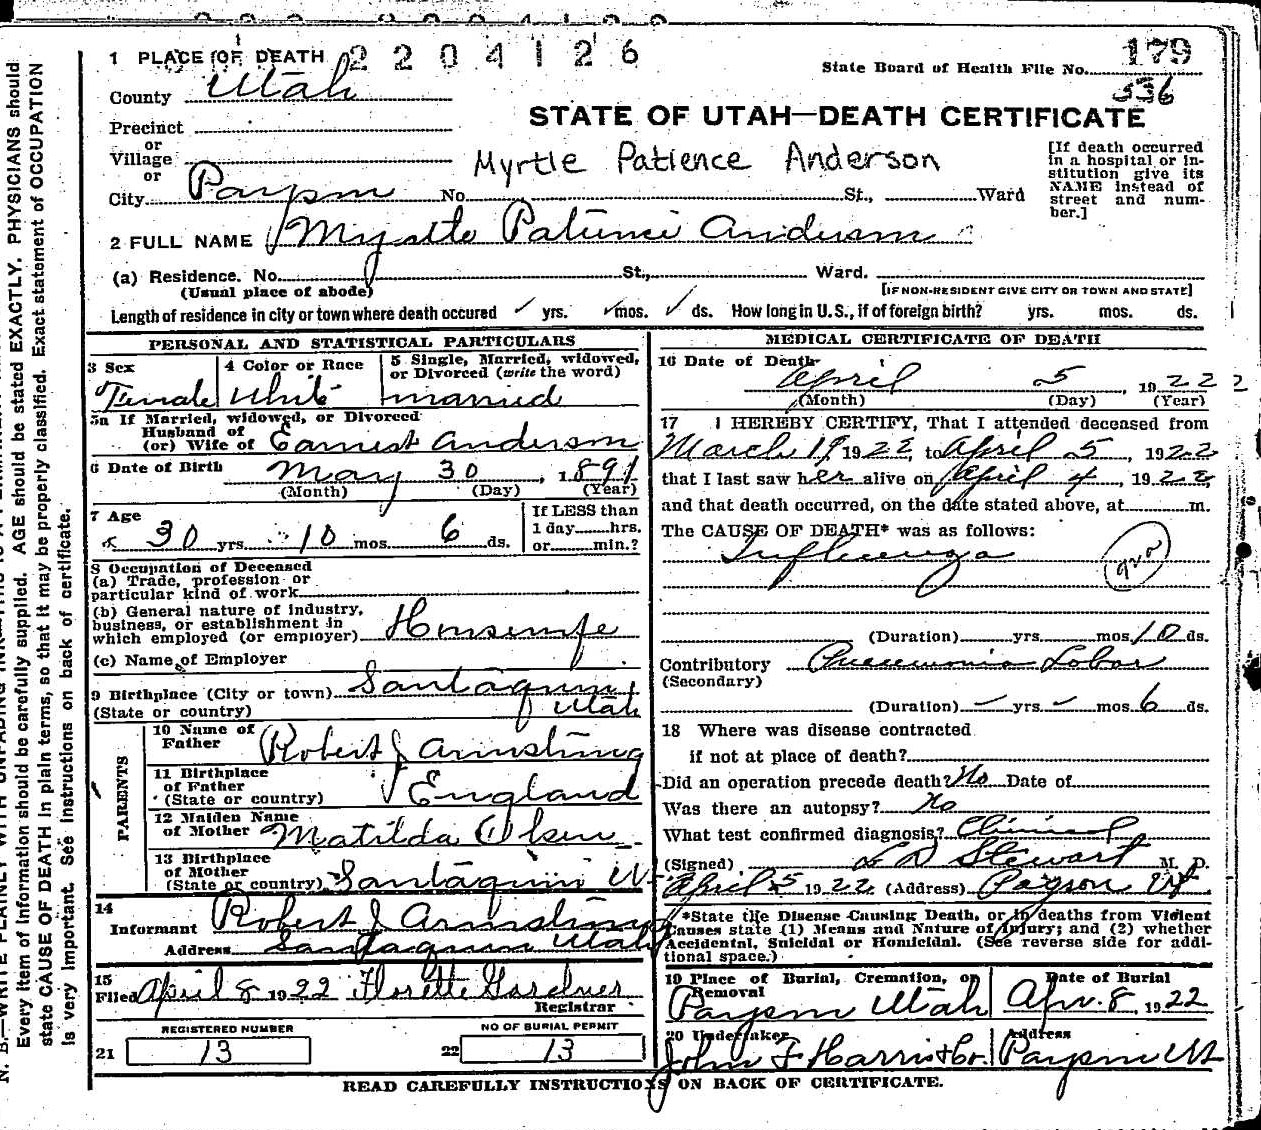 1 PLACE OF DEATH 2204126
State Board of Health File No. 179
336
County Utah
STATE OF UTAH—DEATH CERTIFICATE
Precinct
or
Village
or
Myrtle Patience Anderson
[If death occurred in a hospital or institution give its NAME instead of street and number.]
City Payson No. St., Ward
2 FULL NAME Myrtle Patience Anderson
(a) Residence. No. St., Ward.
(Usual place of abode) [IF NON-RESIDENT GIVE CITY OR TOWN AND STATE]
Length of residence in city or town where death occured ✓ yrs. ✓ mos. ✓ ds. How long in U.S., if of foreign birth? yrs. mos. ds.
PERSONAL AND STATISTICAL PARTICULARS
3 Sex
Female
4 Color or Race
White
5 Single, Married, widowed,
or Divorced (write the word)
married
5a If Married, widowed, or Divorced
Husband of
(or) Wife of Earnest Anderson
6 Date of Birth May 30, 1891
(Month) (Day) (Year)
7 Age
30 yrs. 10 mos. 6 ds.
If LESS than
1 day hrs.
or min.?
8 Occupation of Deceased
(a) Trade, profession or
particular kind of work
(b) General nature of industry,
business, or establishment in
which employed (or employer) Housewife
(c) Name of Employer
9 Birthplace (City or town) Santaquin
(State or country) Utah
PARENTS
10 Name of
Father Robert J Armstrong
11 Birthplace
of Father
(State or country) England
12 Maiden Name
of Mother Matilda Olsen
13 Birthplace
of Mother
(State or country) Santaquin U
14
Informant Robert J Armstrong
Address Santaquin Utah
15
Filed April 8 1922 Florette Gardner
Registrar
REGISTERED NUMBER
21 13
NO OF BURIAL PERMIT
22 13
MEDICAL CERTIFICATE OF DEATH
16 Date of Death
April 5, 1922 2
(Month) (Day) (Year)
17 I HEREBY CERTIFY, That I attended deceased from
March 19 1922, to April 5, 1922
that I last saw her alive on April 4, 1922
and that death occurred, on the date stated above, at m.
The CAUSE OF DEATH* was as follows:
Influenza
(Duration) yrs. mos. 10 ds.
Contributory Pneumonia Lobar
(Secondary)
(Duration) — yrs — mos. 6 ds.
18 Where was disease contracted
if not at place of death?
Did an operation precede death? No Date of
Was there an autopsy? No
What test confirmed diagnosis? Clinical
(Signed) Stewart M. D.
April 5 1922 (Address) Payson Ut
*State the Disease Causing Death, or in deaths from Violent
Causes state (1) Means and Nature of Injury; and (2) whether
Accidental, Suicidal or Homicidal. (See reverse side for addi-
tional space.)
19 Place of Burial, Cremation, or
Removal
Payson Utah
Date of Burial
Apr. 8, 1922
20 Undertaker
John F Harris & Co.
Address
Payson Ut
READ CAREFULLY INSTRUCTIONS ON BACK OF CERTIFICATE.
Every item of information should be carefully supplied. AGE should be stated EXACTLY. PHYSICIANS should
state CAUSE OF DEATH in plain terms, so that it may be properly classified. Exact statement of OCCUPATION
is very important. See instructions on back of certificate.